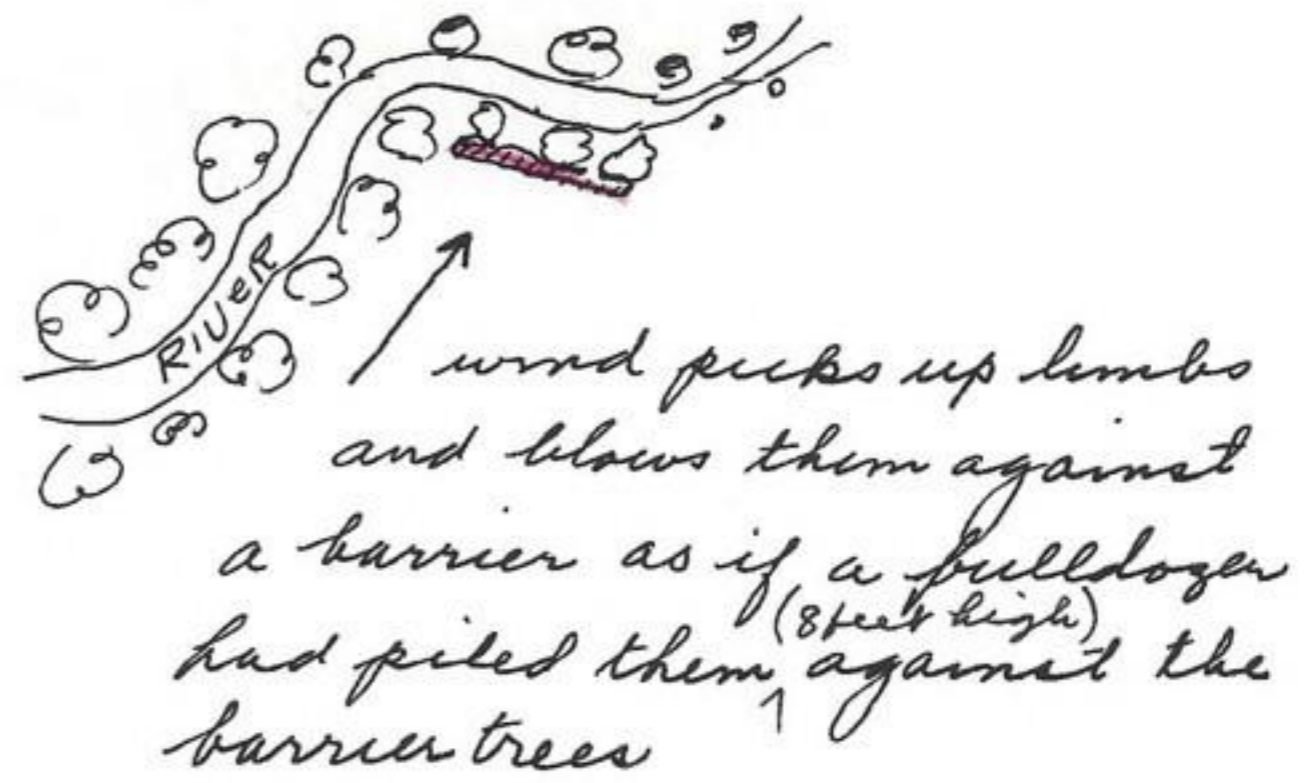 RIVER
wind picks up limbs
and blows them against
a barrier as if a bulldozer
(8 feet high)
had piled them ^ against the
barrier trees